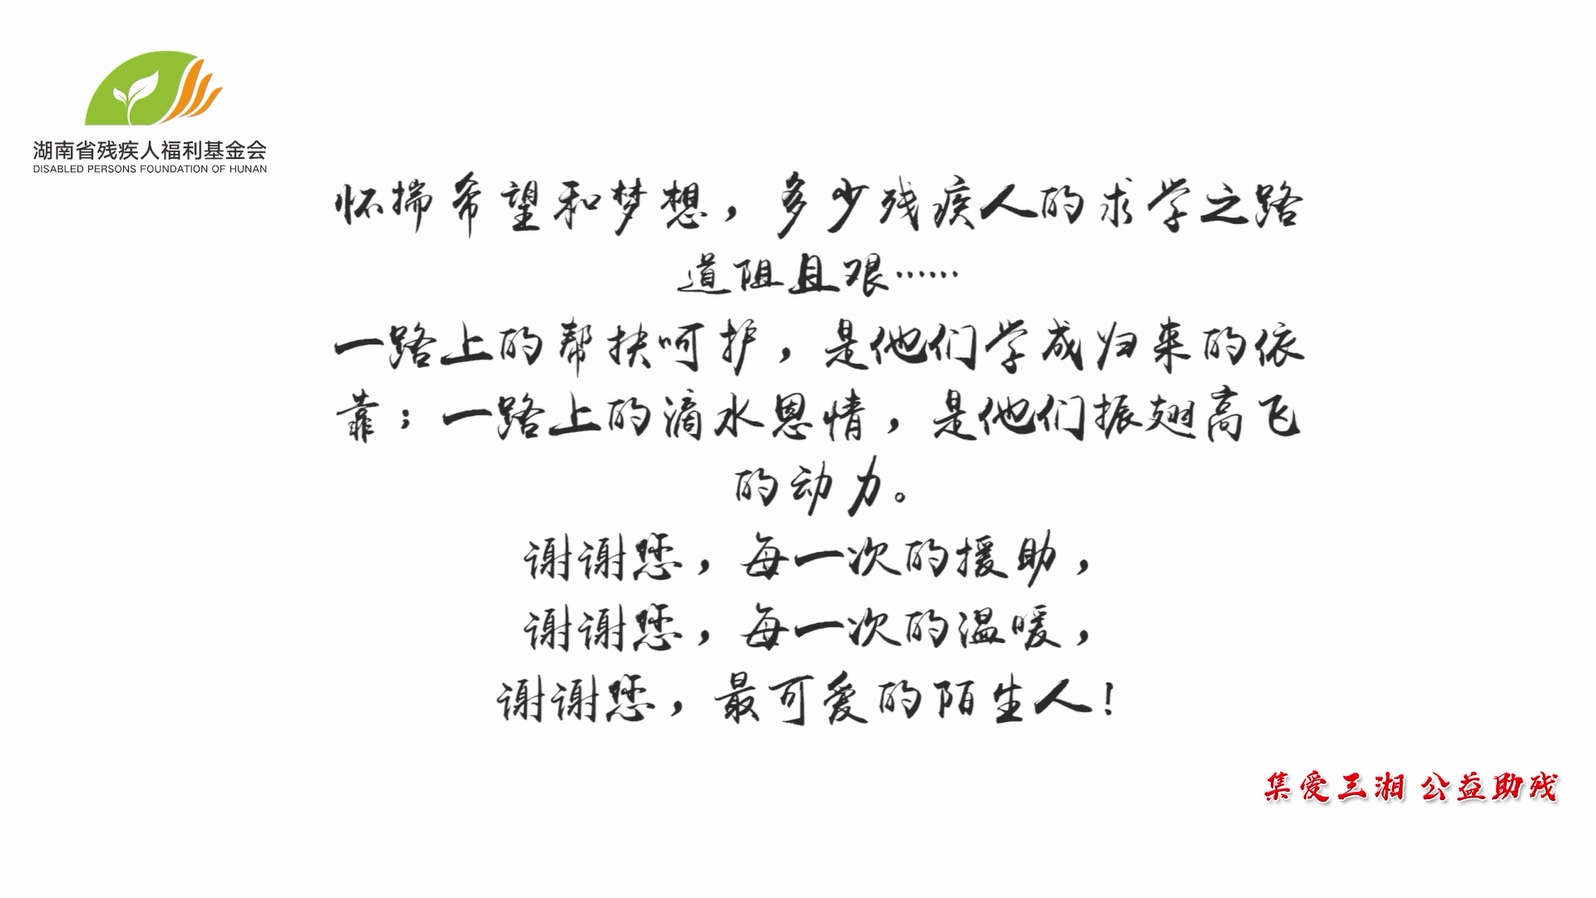 湖南省残疾人福利基金会
DISABLED PERSONS FOUNDATION OF HUNAN
怀揣希望和梦想，多少残疾人的求学之路
道阻且艰……
一路上的帮扶呵护，是他们学成归来的依
靠；一路上的滴水恩情，是他们振翅高飞
的动力。
谢谢您，每一次的援助，
谢谢您，每一次的温暖，
谢谢您，最可爱的陌生人！
集爱三湘 公益助残